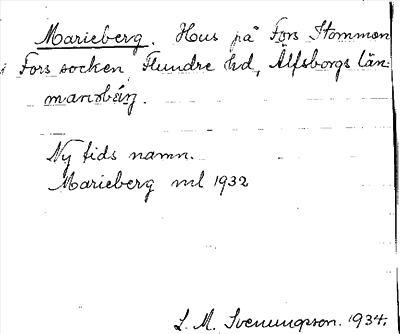 Marieberg. Hus på Fors Stommen
i Fors socken, Flundre hd, Älfsborgs län.
Ny tids namn.
Marieberg ml 1932
L. M. Svenungsson. 1934.